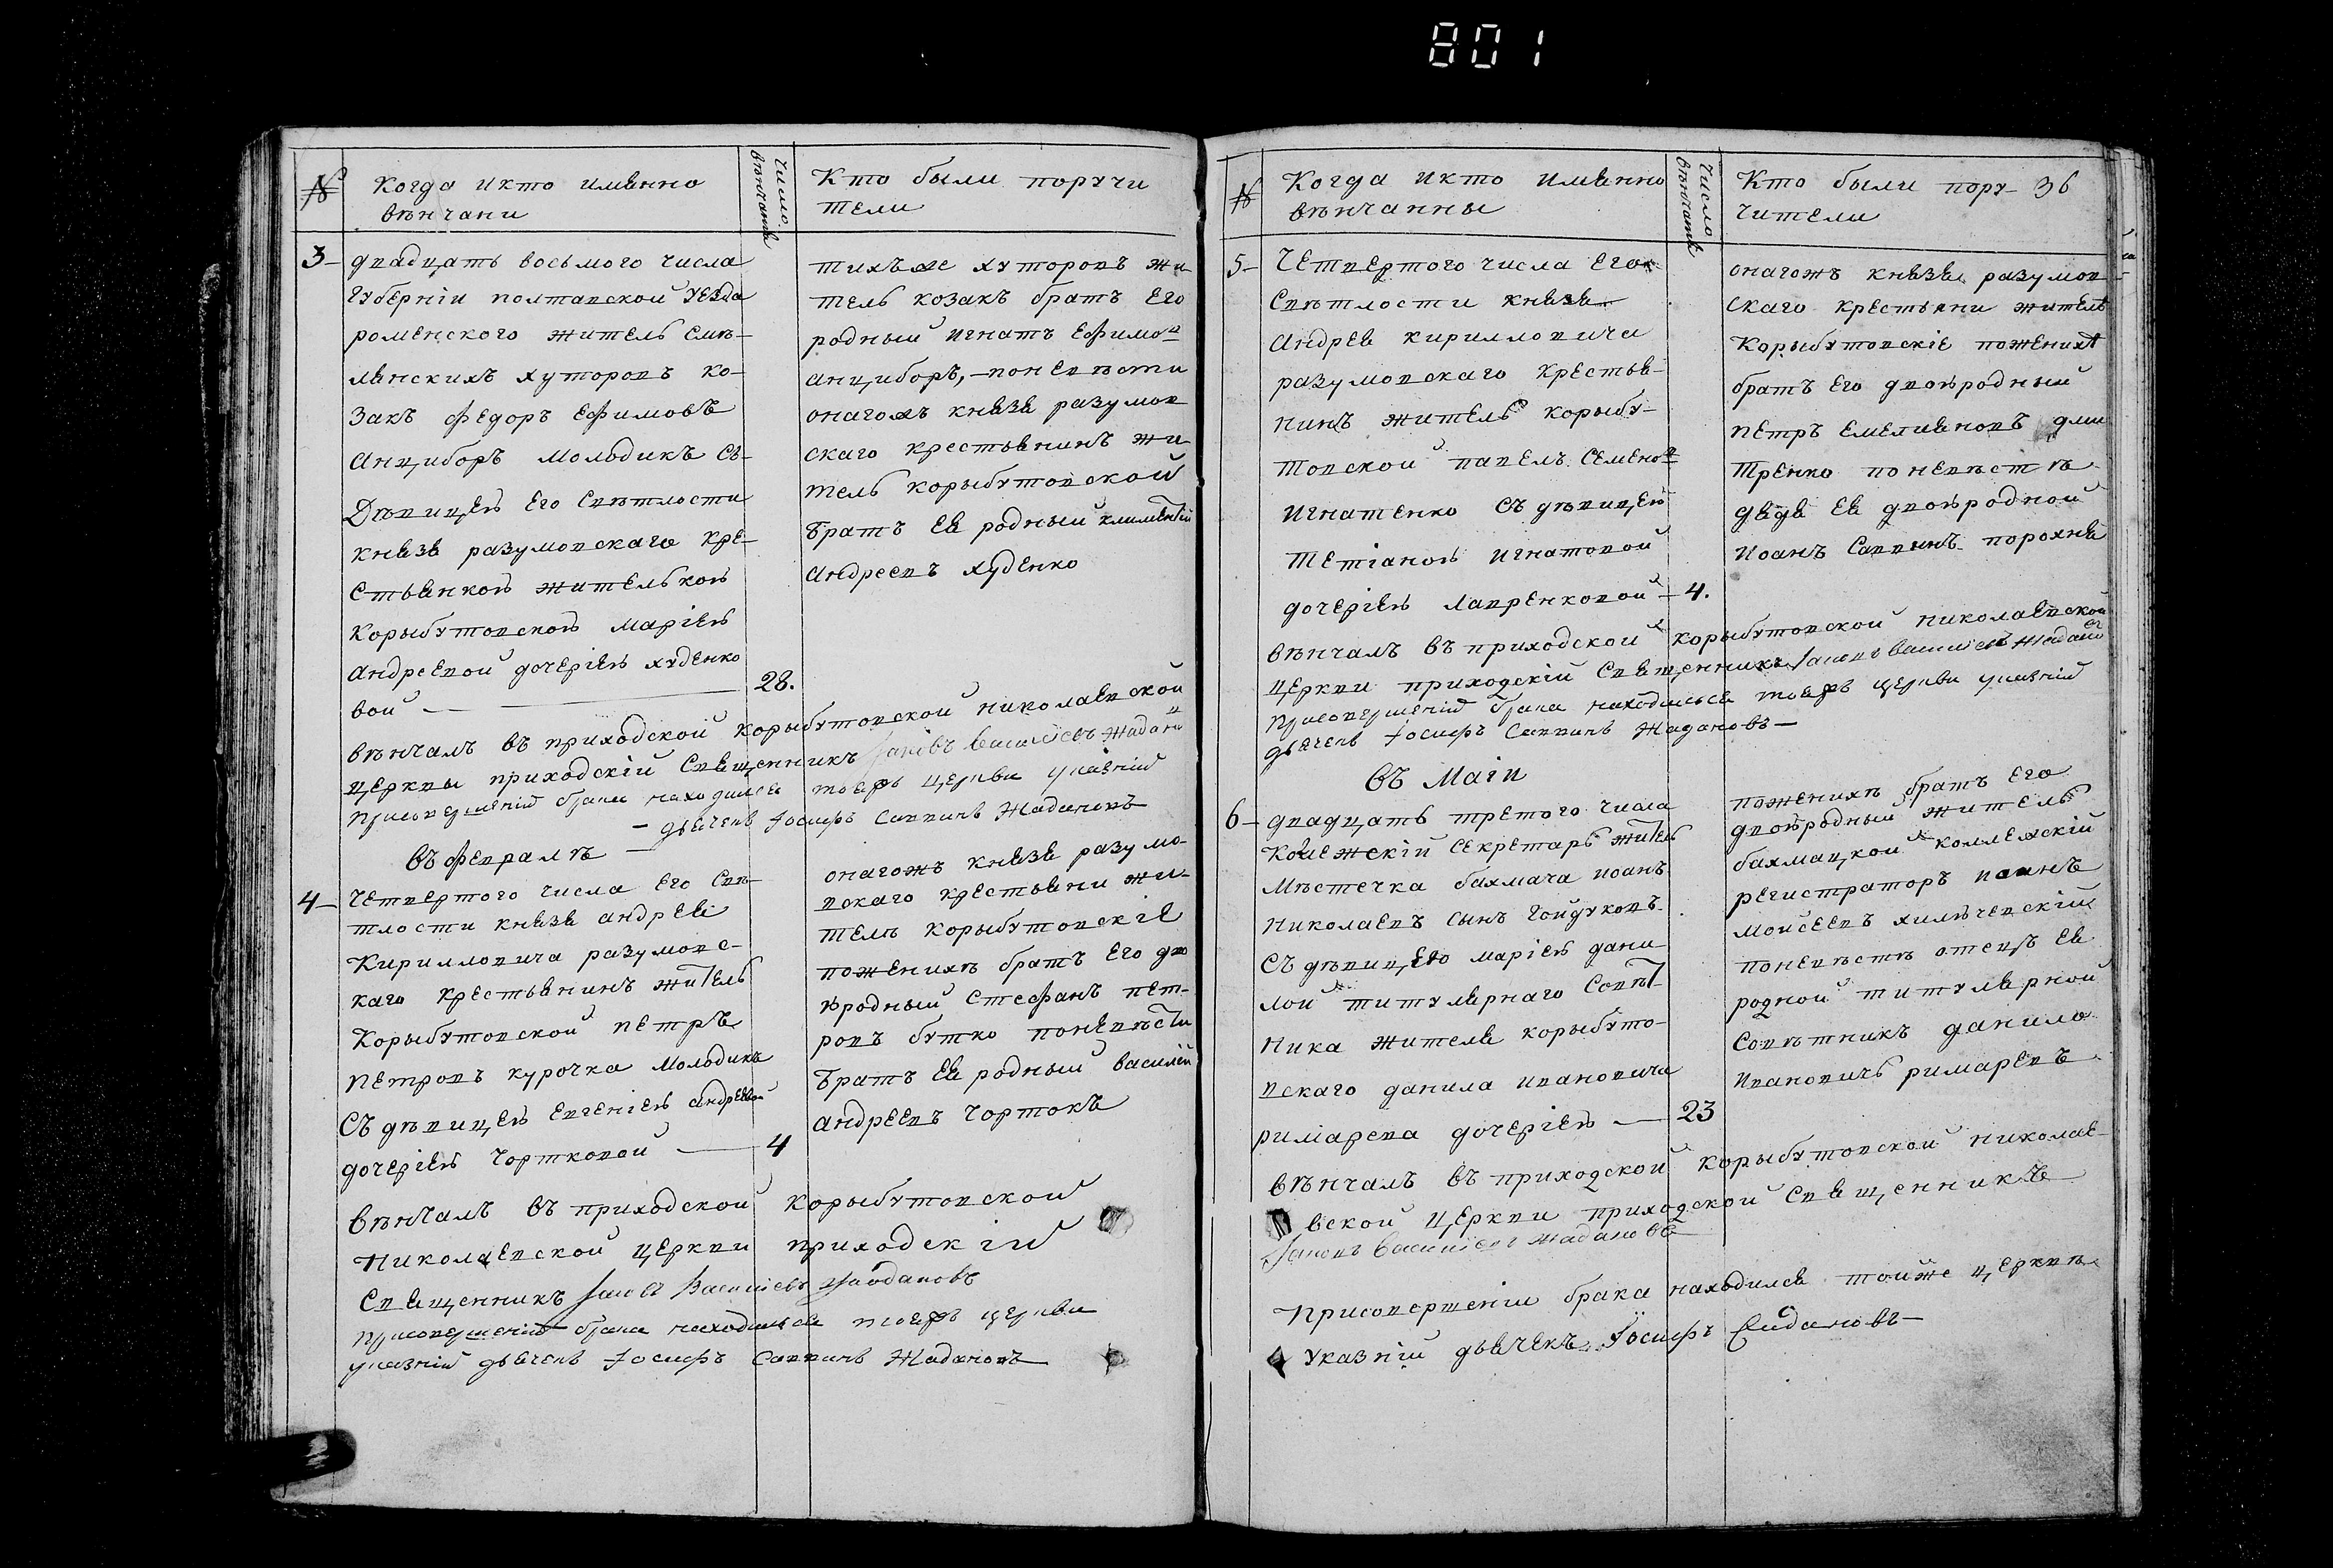 801
№
Когда икто имянно
вѣнчани
Число
вѣнчанія
Кто были поручи
тели
3-
двадцать восьмого числа
Губерніи полтавской уезда
роменского житель Смѣ-
лянскихъ хуторовъ ко-
закъ федоръ Ефимовъ
Анциборъ молодикъ съ
Дѣвицею Его Свѣтлости
князя разумовскаго кре-
стьянкою жителькою
Корыбутовскою маріею
Андреевой дочеріею худенко
вой — 28.
тихъже хуторовъ жи
тель козакъ братъ Его
родный игнатъ Ефимов
анциборъ, -поневѣсти
онагожъ князя разумов
скаго крестьянинъ жи
тель корыбутовской
братъ Ея родный климентій
Андреевъ худенко
вѣнчалъ въ приходской корыбутовской николаевской
церквы приходскій Священникъ Іаковъ Василіевъ Жадано
присовершеніи брака находился тоежъ церкви указній
— дьячекъ Іосифъ Саввинъ Жадановъ
Въ февралѣ —
4-
Четвертого числа Его Свѣ-
тлости князя андрея
Кирилловича разумовс-
каго крестьянинъ житель
Корыбутовской петръ
петровъ курочка молодикъ
Съ дѣвицею Евгеніею андреевой
дочеріею Чортковой — 4
онагожъ князя разумо-
вскаго крестьяни жи-
телѣ корыбутовскіе
поженихѣ братъ Его дво
юродный Стефанъ пет-
ровъ бутко поневѣсти
братъ Ея родный василій
андреевъ Чортокъ
вѣнчалъ въ приходской корыбутовской
николаевской церкви приходскій
Священникъ Іаковъ Василіевъ Жадановъ
присовершеніи брака находился тоежъ церкви
указній дьячекъ Іосифъ Саввинъ Жадановъ
№
Когда икто имянно
вѣнчанны
Число
вѣнчанія
Кто были пору- 36
чители
5-
Четвертого числа Его
Свѣтлости князя
Андрея кирилловича
разумовскаго крестья-
нинъ житель корыбу-
товской павелъ Семенов
игнатенко Съ дѣвицею
Тетіаною игнатовой
дочеріею лавренковой — 4.
онагожъ князя разумов-
скаго крестьяни жителѣ
Корыбутовскіе поженихѣ
братъ Его двоюродный
петръ Емелияновъ дми
тренко поневѣстѣ
дядя Ея двоюродной
иоанъ Саввинъ порохня
вѣнчалъ въ приходской корыбутовской николаевской
церкви приходскій Священникъ Іаковъ Василіевъ Жадано
присовершеніи брака находился тоежъ церкви указній
дьячекъ Іосифъ Саввинъ Жадановъ —
Въ Маіи
6-
двадцать третого числа
Колежскій Секретарь житель
Мѣстечка бахмача иоанъ
Николаевъ сынъ Гойдуковъ
Съ дѣвицею маріею дани
лой титулярнаго Совѣт
ника жителя корыбуто-
вскаго данила ивановича
римарева дочеріею — 23
поженихѣ братъ Его
двоюродный житель
бахмацкой коллежскій
регистраторъ иоанъ
Мойсеевъ хильчевскій
поневѣстѣ отецъ Ея
родной титулярной
Совѣтникъ данило
Ивановичъ римаревъ
вѣнчалъ въ приходской корыбутовской николае-
вской церкви приходской Священникъ
Іаковъ Василіевъ Жадановъ
Присовершеніи брака находился тойже церквѣ
Указній дьячекъ Іосифъ Жадановъ —